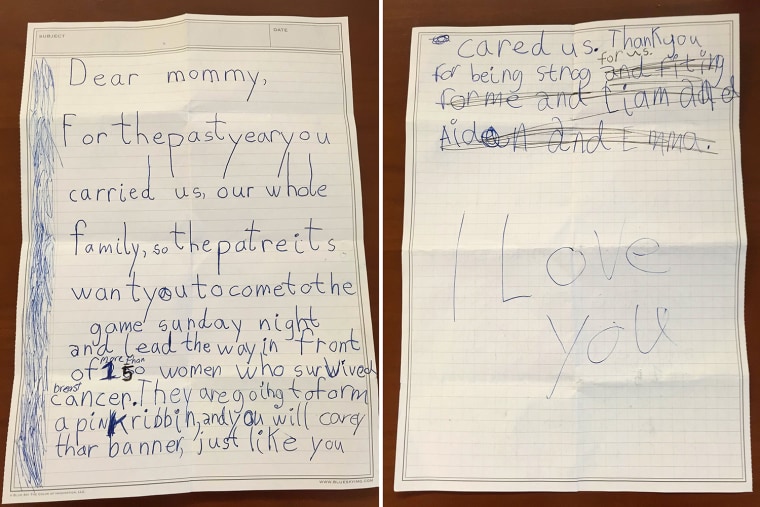 SUBJECT
DATE
Dear mommy,
For the past year you
carried us, our whole
family, so the patreits
want you to come to the
game sunday night
and lead the way in front
more than
of 150 women who survived
breast
cancer. They are going to form
a pink ribbin, and you will carey
thar banner, just like you
WWW.BLUESKYIMG.COM
cared us. Thankyou
for us.
for being strog and fiting
for me and Liam and
Aidan and Emma.
I Love
you